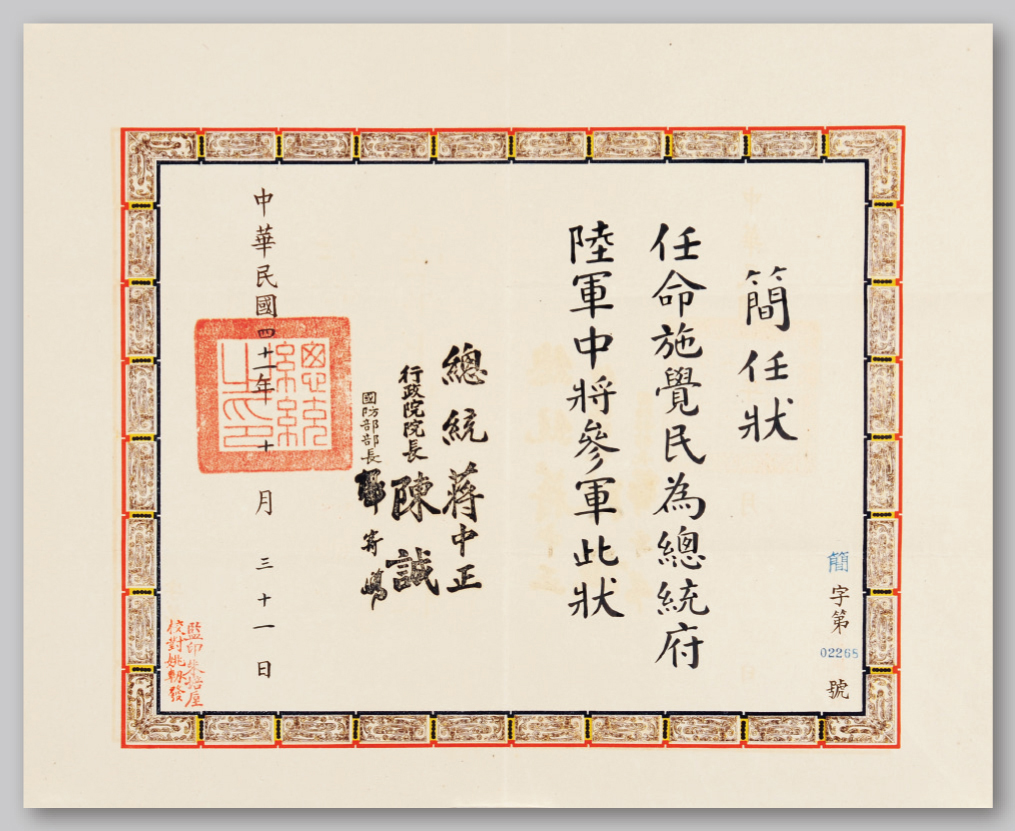 簡字第02265號
簡任狀
任命施覺民為總統府
陸軍中將參軍此狀
總統蔣中正
行政院院長陳誠
國防部部長郭寄嶠
中華民國四十一年十月三十一日
總統之印
監印朱
校對姚